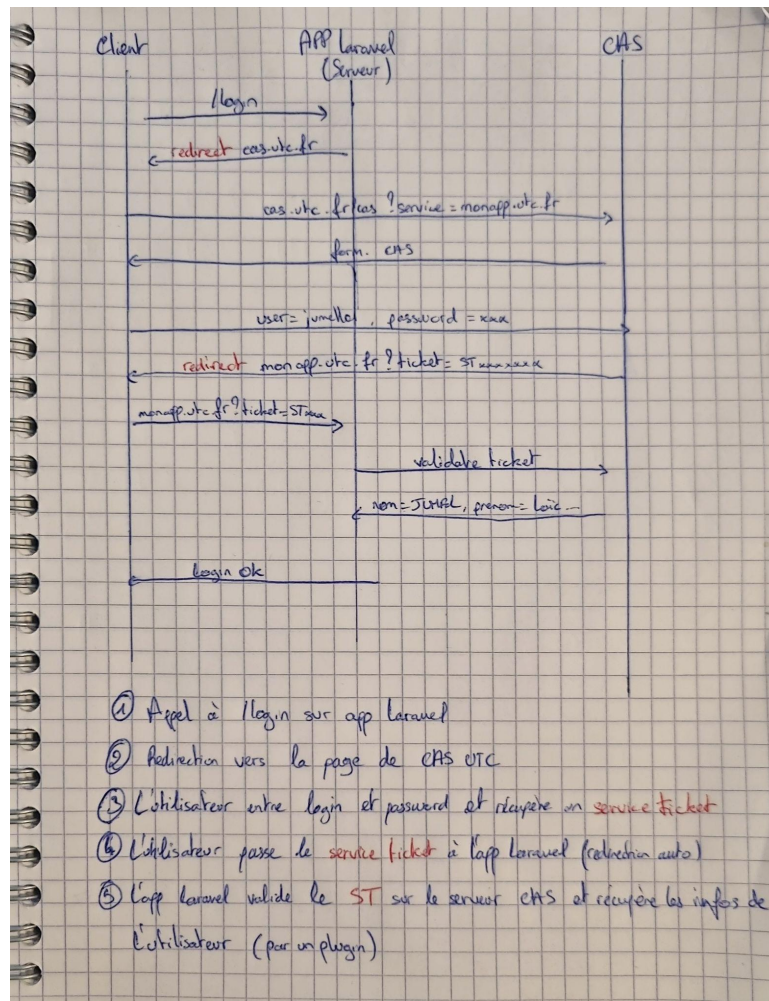 Client
APP Laravel
CAS
(Serveur)
/login
redirect cas.utc.fr
cas.utc.fr/cas ?service=monapp.utc.fr
form. CAS
user= jumelloi, password = xxx
redirect monapp.utc.fr ? ticket= STxxxxxxx
monapp.utc.fr?ticket=STxxx
validate ticket
nom=JUMEL, prenom= Loïc...
Login ok
① Appel à /login sur app Laravel
② Redirection vers la page de CAS UTC
③ L'utilisateur entre login et password et récupère un service ticket
④ L'utilisateur passe le service ticket à l'app Laravel (redirection auto)
⑤ L'app Laravel valide le ST sur le serveur CAS et récupère les infos de
l'utilisateur (par un plugin)